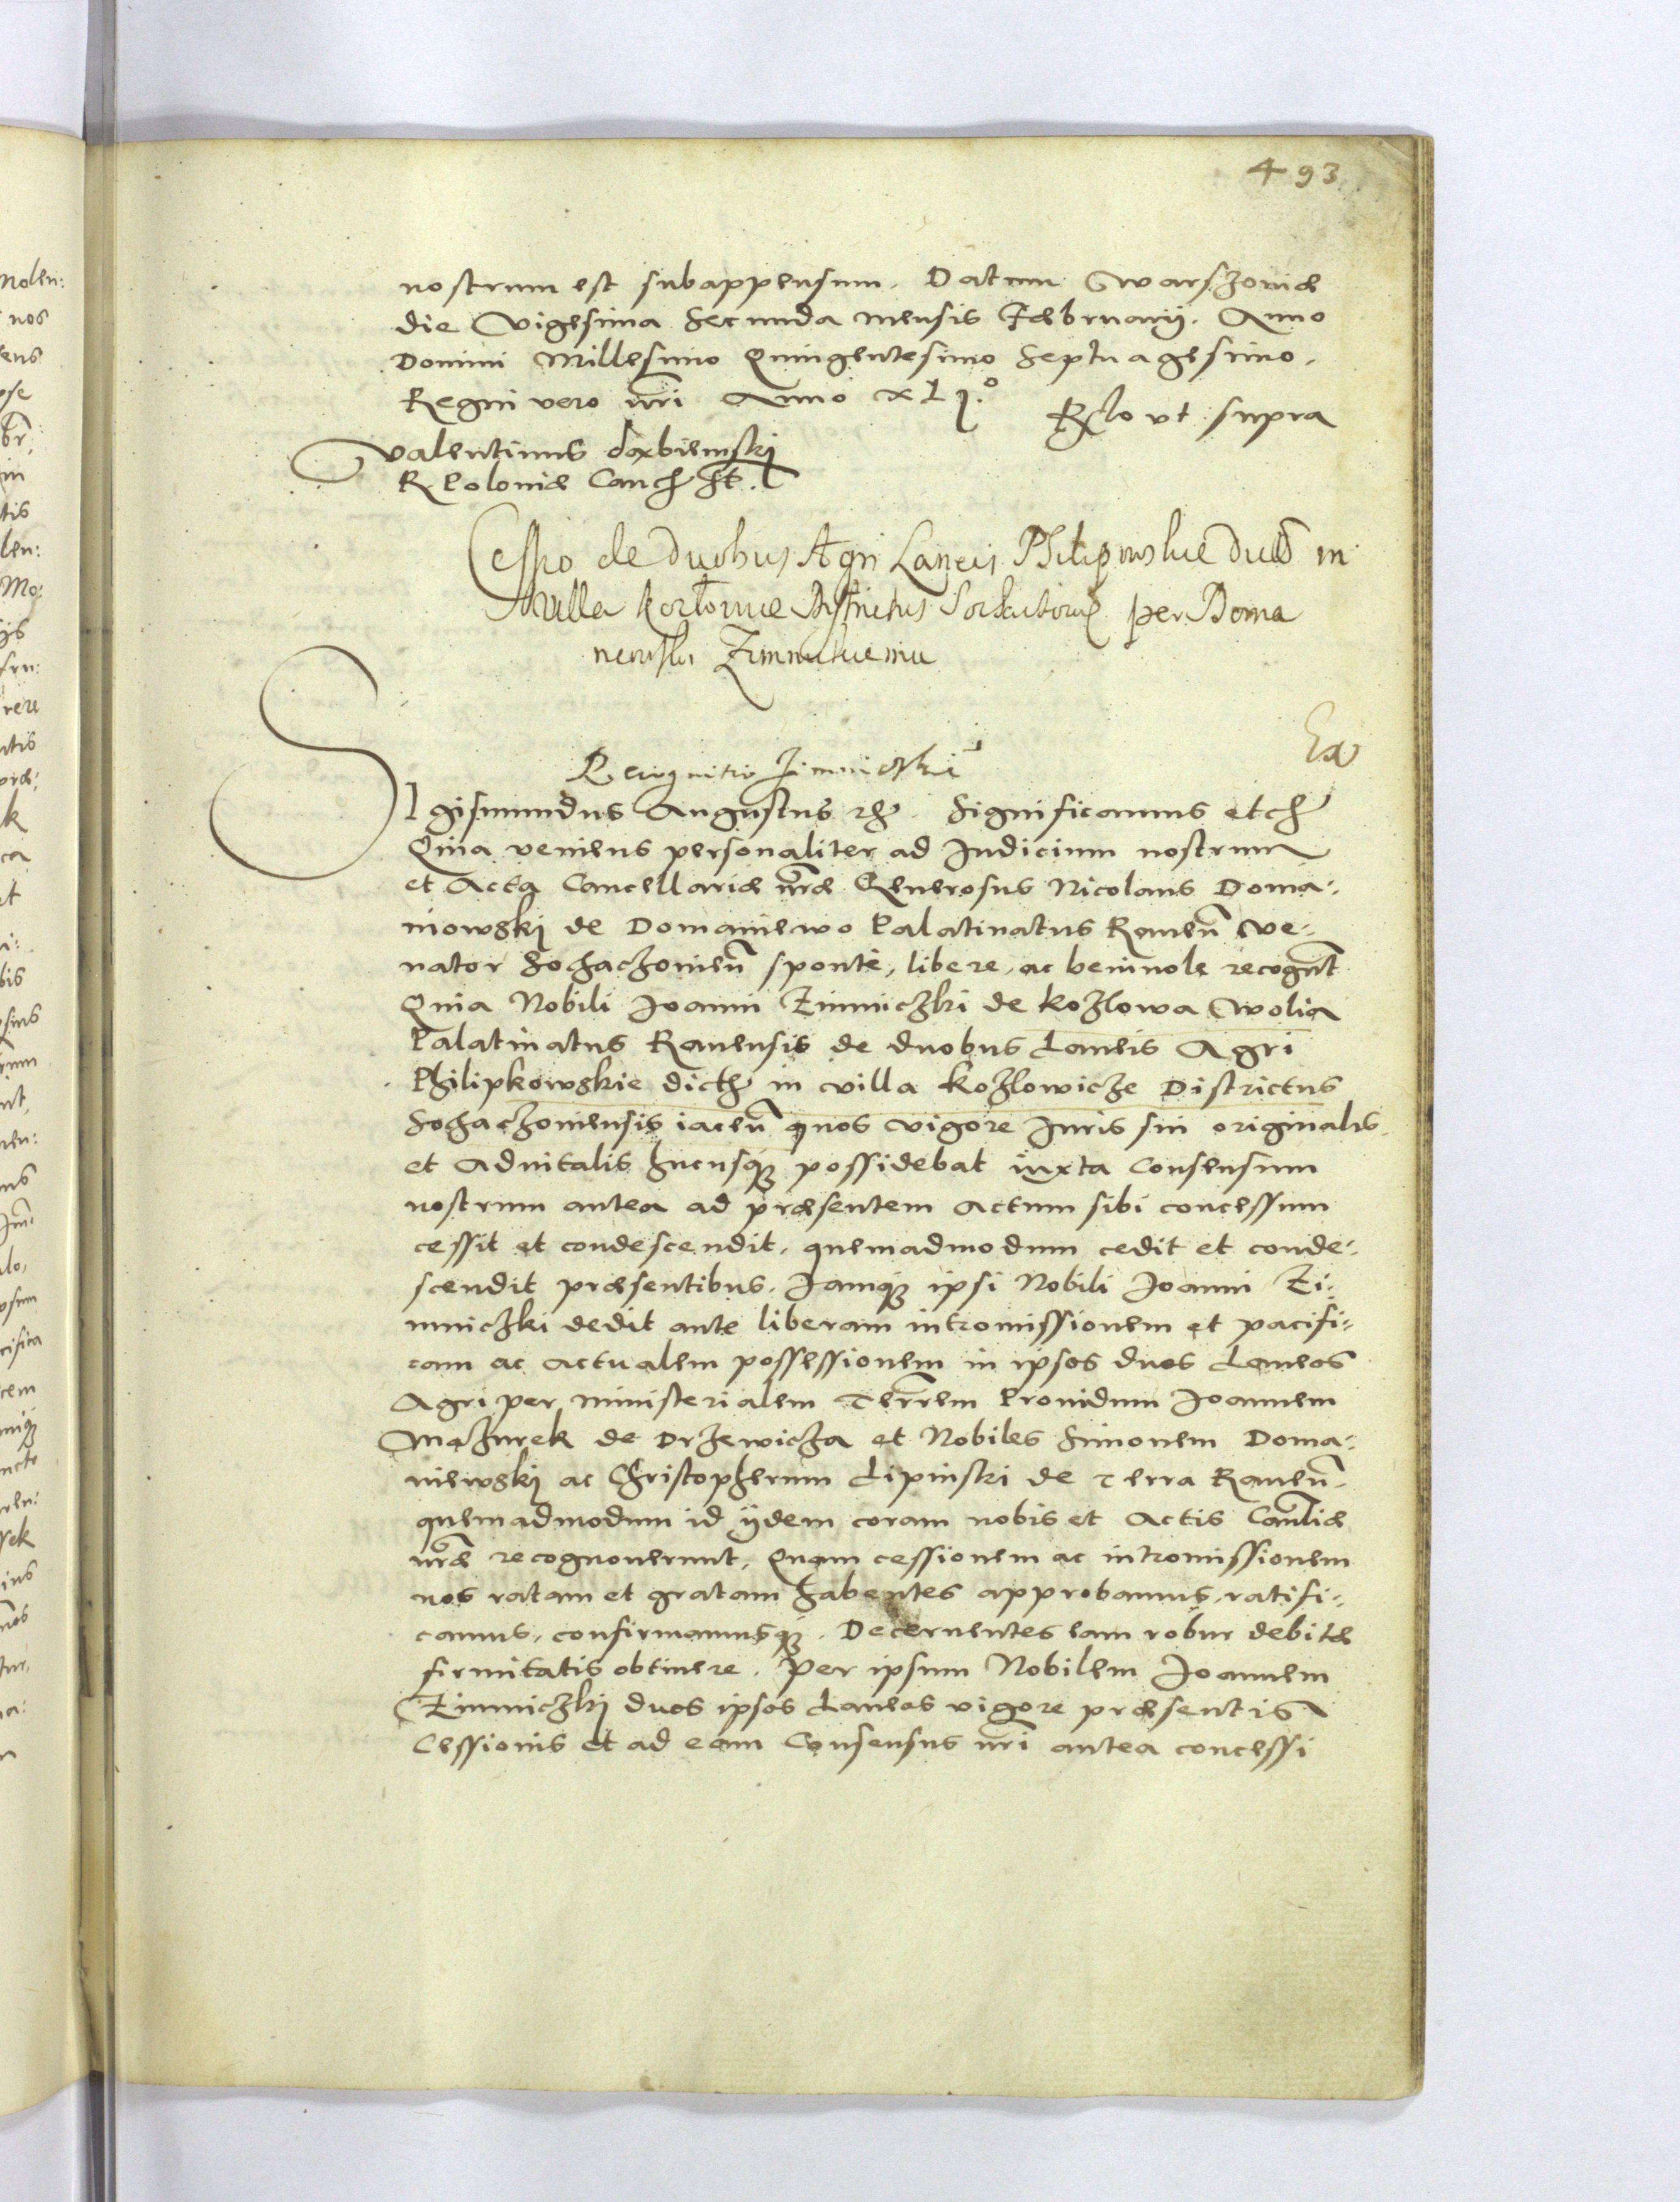 493
nostrum est subappensum. Datum Warszoviæ
die Vigesima Secunda mensis Februarij. Anno
Domini Millesimo Quingentesimo Septuagesimo.
Regni vero nri Anno XLI.º Rlo vt supra
Valentinus Dąbiemski
R. Poloniæ Canc
Cessio de duobus Agri Laneis in
villa Districtus per Doma
Ex
Recognitio Zimniczki
SIgismundus Augustus Significamus etc
Quia veniens personaliter ad Iudicium nostrum
et Acta Cancellariæ nræ Generosus Nicolaus Doma:
niowskij de Domaniewo Palatinatus Rauen Ve:
nator Sochaczouien sponte, libere, ac beniuole recognt
Quia Nobili Joanni Zimniczki de Kozlowa Wolia
Palatinatus Rauensis de duobus Laneis Agri
Philipkowskie dict in villa Kozlowicze Districtus
Sochaczouiensis iacen quos vigore Iuris sui originalis
et Aduitalis hucusq possidebat iuxta Consensum
nostrum antea ad præsentem actum sibi concessum
cessit et condescendit, quemadmodum cedit et conde:
scendit præsentibus. Iamq ipsi Nobili Joanni Zi:
mniczki dedit ante liberam intromissionem et pacifi:
cam ac actualem possessionem in ipsos duos Laneos
Agri per ministerialem Terrem Prouidum Joannem
Mazurek de Drzewicza et Nobiles Simonem Doma:
niewskij ac Christopherum Lipinski de terra Rauen.
quemadmodum id ijdem coram nobis et Actis Canliæ
nræ recognouerunt, Quam cessionem ac intromissionem
nos ratam et gratam habentes approbamus, ratifi:
camus, confirmamusq. Decernentes eam robur debitæ
firmitatis obtinere. Per ipsum Nobilem Joannem
Zimniczkij duos ipsos Laneos vigore præsentis
Cessionis et ad eam Consensus nri antea concessi